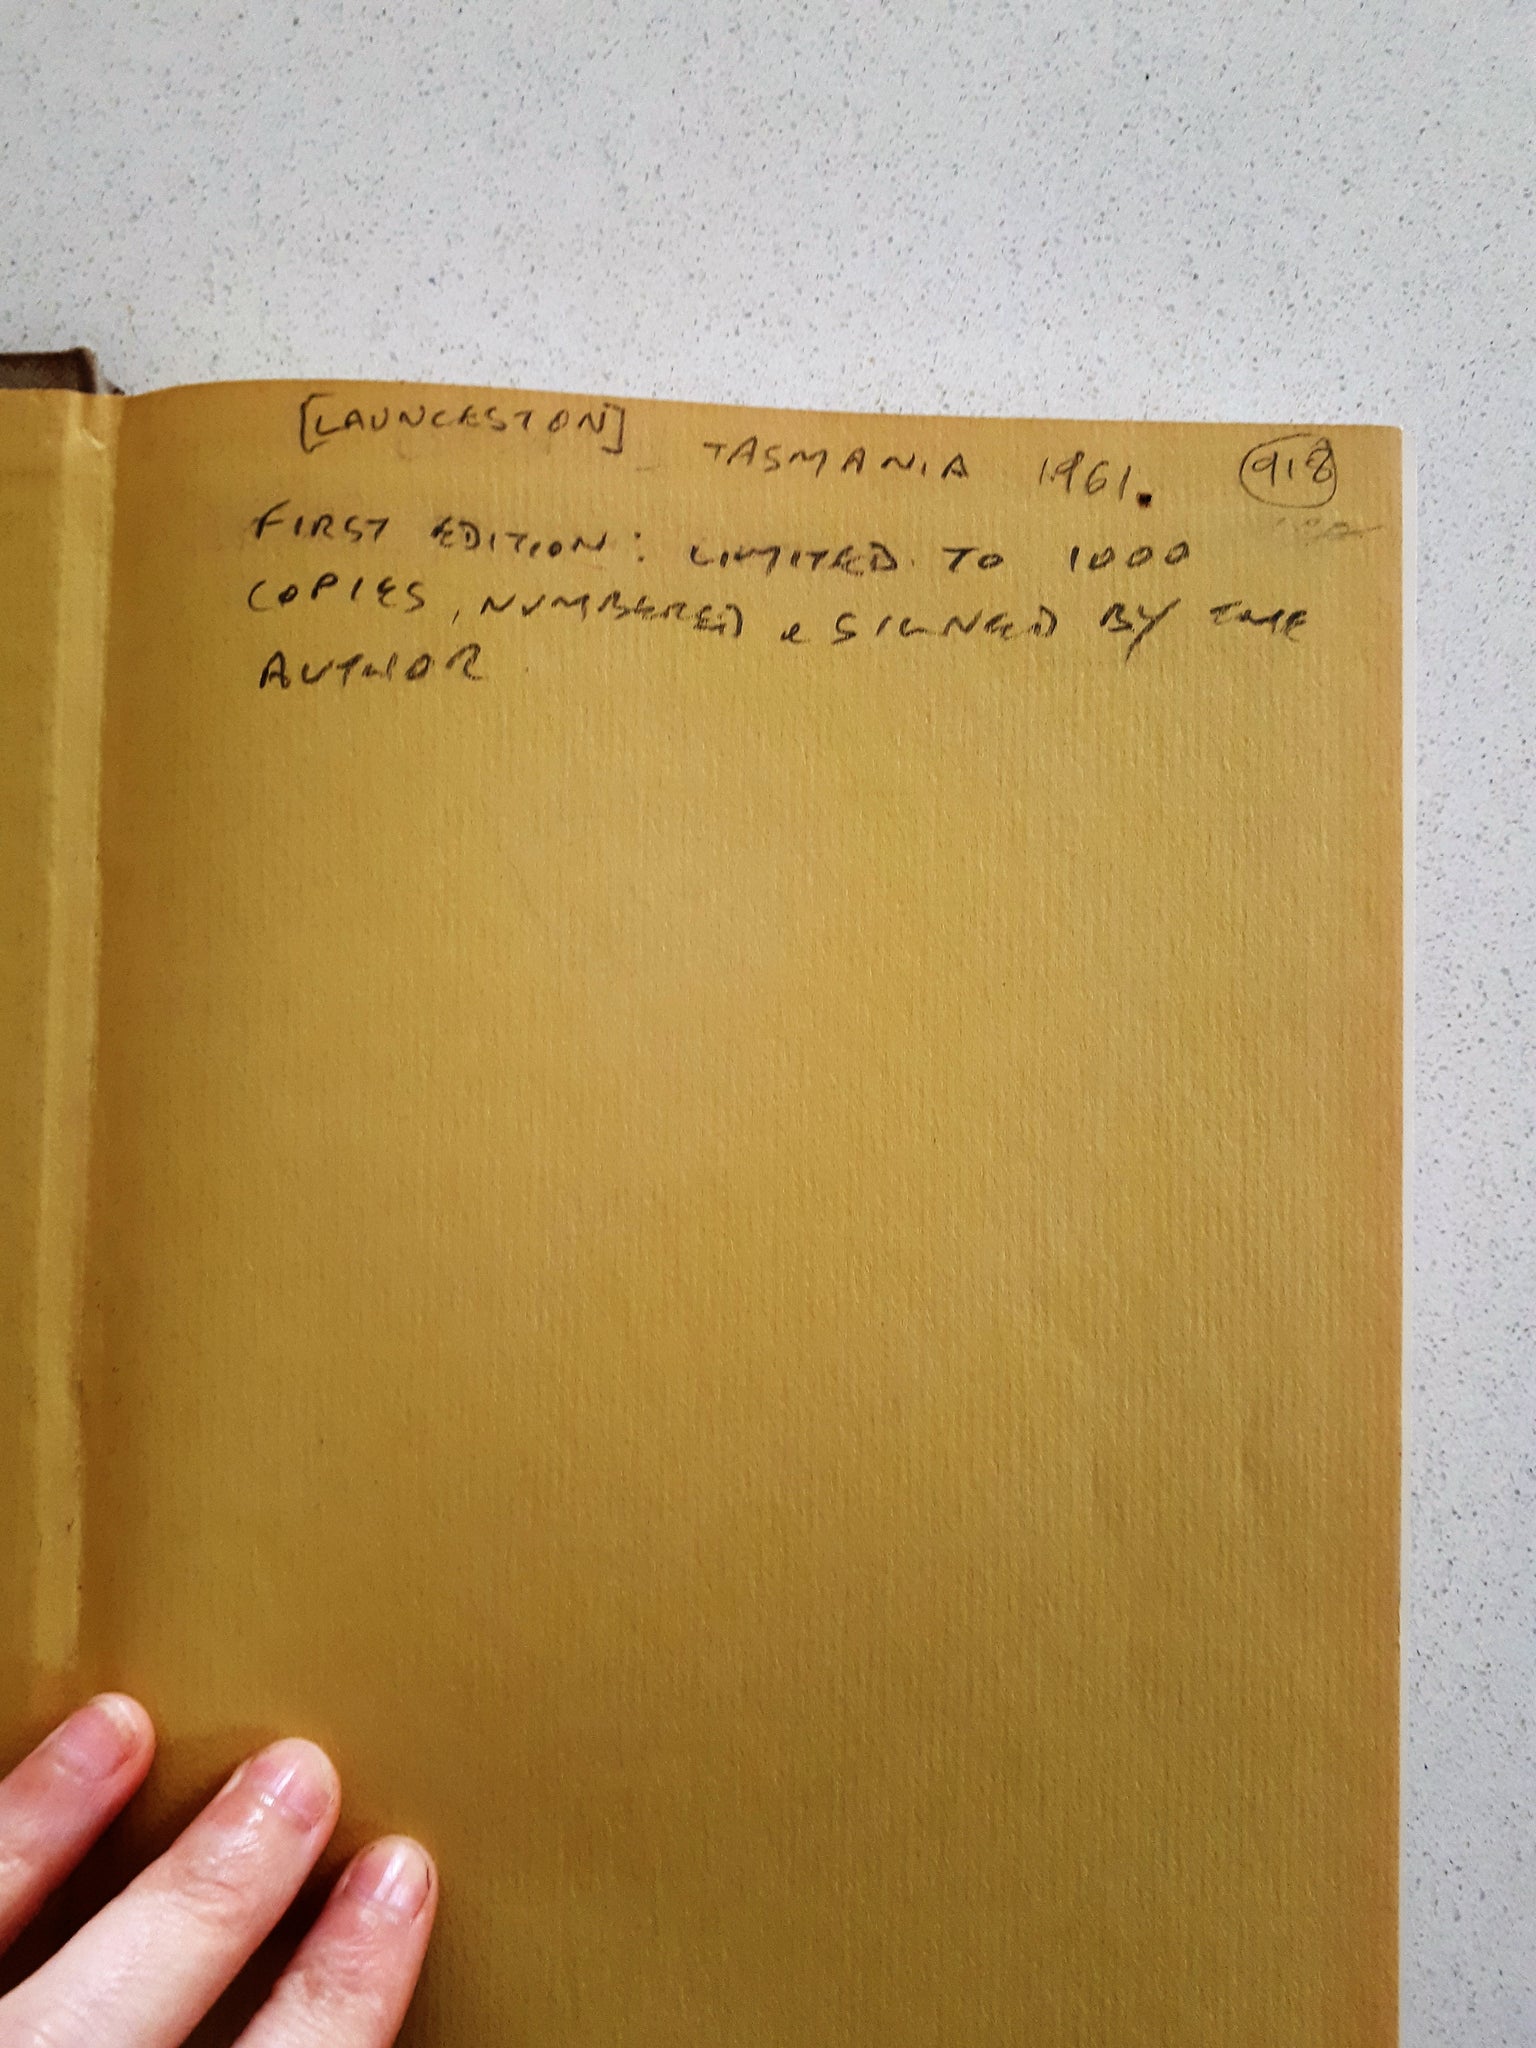 [LAUNCESTON] TASMANIA 1961. 918
FIRST EDITION: LIMITED TO 1000
COPIES, NUMBERED & SIGNED BY THE
AUTHOR